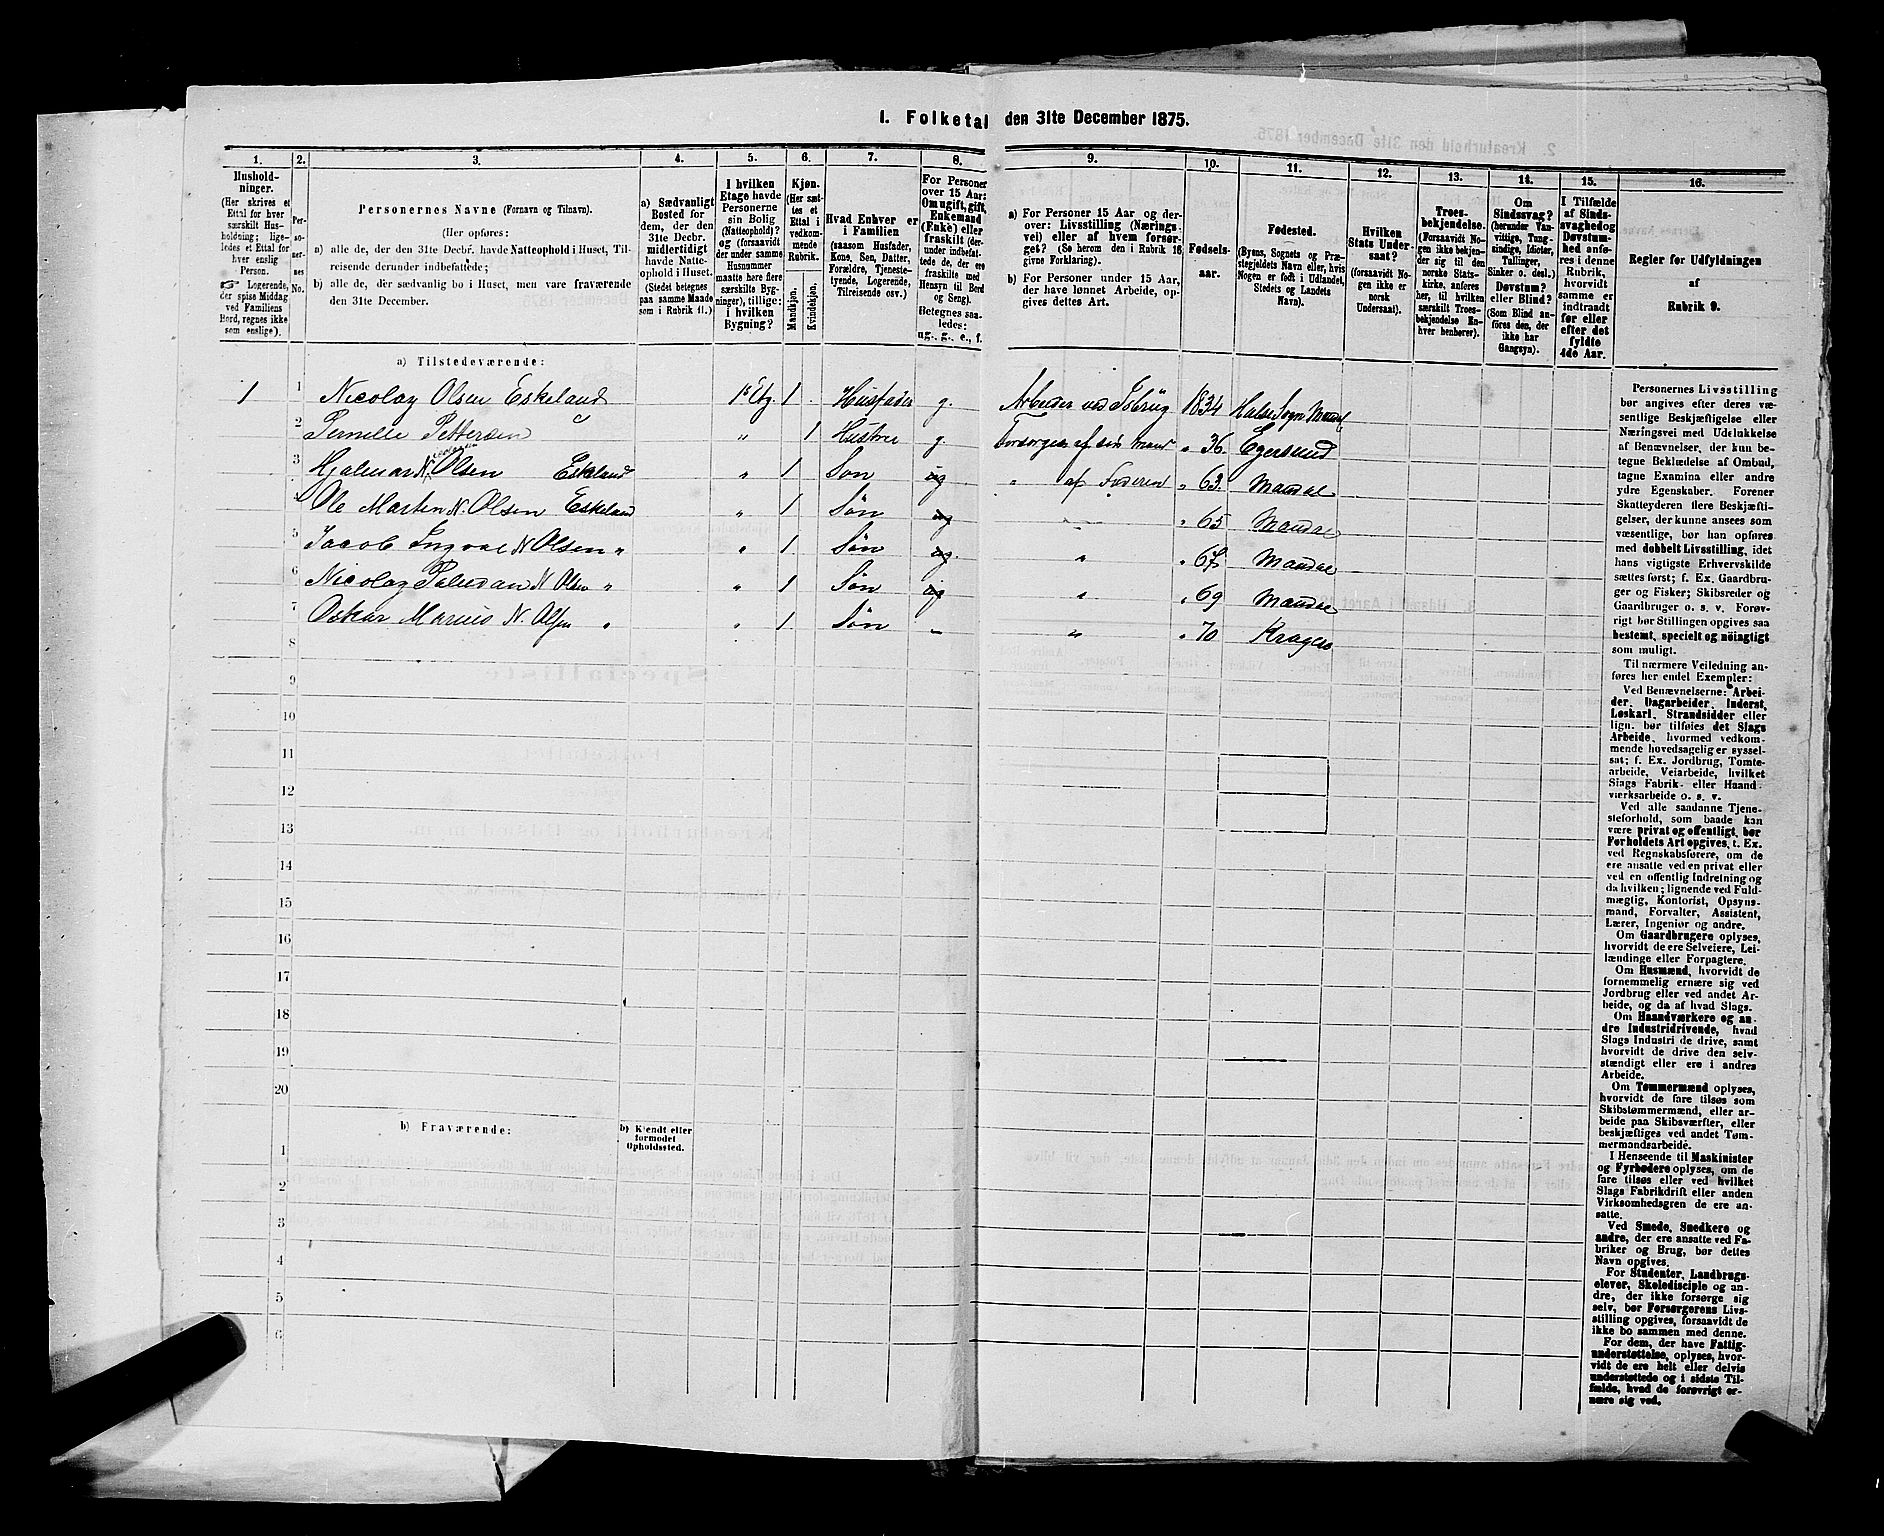 1. Folketal den 31te December 1875.
1. 2. 3. 4. 5. 6. 7. 8. 9. 10. 11. 12. 13. 14. 15. 16.
Husholdninger. (Her skrives et Ettal for hver særskilt Husholdning; ligeledes et Ettal for hver enslig Person.
Logerende, der spise Middag ved Familiens Bord, regnes ikke som enslige).
Personernes No.
Personernes Navne (Fornavn og Tilnavn).
(Her opføres:
a) alle de, der den 31te Decbr. havde Natteophold i Huset, Tilreisende derunder indbefattede;
b) alle de, der sædvanlig bo i Huset, men vare fraværende den 31te December.
a) Sædvanligt Bosted for dem, der den 31te Decbr. midlertidigt havde Natteophold i Huset. (Stedet betegnes paa samme Maade som i Rubrik 11.)
I hvilken Etage havde Personerne sin Bolig (Natteophold)? og (forsaavidt der under samme Husnummer maatte høre flere særskilte Bygninger), tillige: i hvilken Bygning?
Kjøn. (Her sættes et Ettal i vedkommende Rubrik.
Mandkjøn. Kvindekjøn.
Hvad Enhver er i Familien (saasom Husfader, Kone, Søn, Datter, Forældre, Tjenestetyende, Logerende, Tilreisende osv.)
For Personer over 15 Aar: Om ugift, gift, Enkemand (Enke) eller fraskilt (derunder indbefattede de, der ere fraskilte med Hensyn til Bord og Seng). Betegnes saaledes: ug., g., e., f.
a) For Personer 15 Aar og derover: Livsstilling (Næringsvei) eller af hvem forsørget? (Se herom den i Rubrik 16 givne Forklaring).
b) For Personer under 15 Aar, der have lønnet Arbeide, opgives dettes Art.
Fødselsaar.
Fødested. (Byens, Sognets og Præstegjeldets Navn eller, hvis Nogen er født i Udlandet, Stedets og Landets Navn).
Hvilken Stats Undersaat? (forsaavidt Nogen ikke er norsk Undersaat).
Troesbekjendelse. (Forsaavidt Nogen ikke bekjender sig til den norske Statskirke, anføres her, til hvilken særskilt Troesbekjendelse Enhver henhører).
Om Sindssvag? (herunder Vanvittige, Tungsindige, Idioter, Tullinger, Sinker o. desl.) Døvstum? eller Blind? (Som Blind anføres den, der ikke har Gangsyn).
I Tilfælde af Sindssvaghed og Døvstumhed anføres i denne Rubrik, hvorvidt samme er indtraadt før eller efter det fyldte 4de Aar.
Regler for Udfyldningen af Rubrik 9.
a) Tilstedeværende:
1 1 Nicolay Olsen Eskeland 1ste Etg. 1 Husfader g. Arbeider ved 1834 Halse Sogn Mandal
2 Pernille Pettersen " 1 Hustru g Forsørges af sin Mand " 36. Egersund
3 Hjalmar N. Olsen Eskeland " 1 Søn ug " af Faderen " 63. Mandal
4 Ole Marten N. Olsen Eskeland " 1 Søn ug " " 65 Mandal
5 Jacob Ingval N Olsen " " 1 Søn ug. " " 67 Mandal
6 Nicolay N Olsen " " 1 Søn ug " " 69 Mandal
7 Oskar Marius N. Olsen " " 1 Søn – " " 70 Kragerø
8
9
10
11
12
13
14
15
16
17
18
19
20
b) Fraværende: b) Kjendt eller formodet Opholdssted.
1
2
3
4
5
6
Personernes Livsstilling
bør angives efter deres væsentlige Beskjæftigelse eller
Næringsvei med Udelukkelse
af Benævnelser, der kun betegne Beklædelse af Ombud,
tagne Examina eller andre
ydre Egenskaber. Forener
Skatteyderen flere Beskjæftigelser, der kunne ansees som
væsentlige, bør han opføres
med dobbelt Livsstilling, idet
hans vigtigste Erhvervskilde
sættes først; f. Ex. Gaardbruger og Fisker; Skibsreder og
Gaardbruger o. s. v. Forøvrigt bør Stillingen opgives saa
bestemt, specielt og nøiagtigt
som muligt.
Til nærmere Veiledning anføres her endel Exempler:
Ved Benævnelserne: Arbeider, Dagarbeider, Inderst,
Løskarl, Strandsidder eller
lign. bør tilføies det Slags
Arbeide, hvormed vedkommende hovedsagelig er sysselsat; f. Ex. Jordbrug, Tomtearbeide, Veiarbeide, hvilket
Slags Fabrik- eller Haandværksarbeide o. s. v.
Ved alle saadanne Tjenesteforhold, som baade kan
være privat og offentligt, bør
Forholdets Art opgives, t. Ex.
ved Regnskabsførere, om de
ere ansatte ved en privat eller
ved en offentlig Indretning og
da hvilken; lignende ved Fuldmægtig, Kontorist, Opsynsmand, Forvalter, Assistent,
Lærer, Ingeniør og andre.
Om Gaardbrugere oplyses,
hvorvidt de ere Selveiere, Leilændinge eller Forpagtere.
Om Husmænd, hvorvidt de
fornemmelig ernære sig ved
Jordbrug eller ved andet Arbeide, og da af hvad Slags.
Om Haandværkere og andre Industridrivende, hvad
Slags Industri de drive, samt
hvorvidt de drive den selvstændigt eller ere i andres
Arbeide.
Om Tømmermænd oplyses,
hvorvidt de fare tilsøs som
Skibstømmermænd, eller arbeide paa Skibsværfter, eller
beskjæftiges ved andet Tømmermandsarbeide.
I Henseende til Maskinister
og Fyrbødere oplyses, om de
fare tilsøs eller ved hvilket
Slags Fabrikdrift eller anden
Virksomhedsgren de ere ansatte.
Ved Smede, Snedkere og
andre, der ere ansatte ved Fabriker og Brug, bør dettes
Navn opgives.
For Studenter, Landbrugselever, Skoledisciple og andre, der ikke forsørge sig
selv, bør Forsørgerens Livsstilling opgives, forsaavidt de
ikke bo sammen med denne.
For dem, der have Fattigunderstøttelse, oplyses, hvorvidt de ere helt eller delvis
understøttede og i sidste Tilfælde, hvad de forøvrigt ernære sig ved.